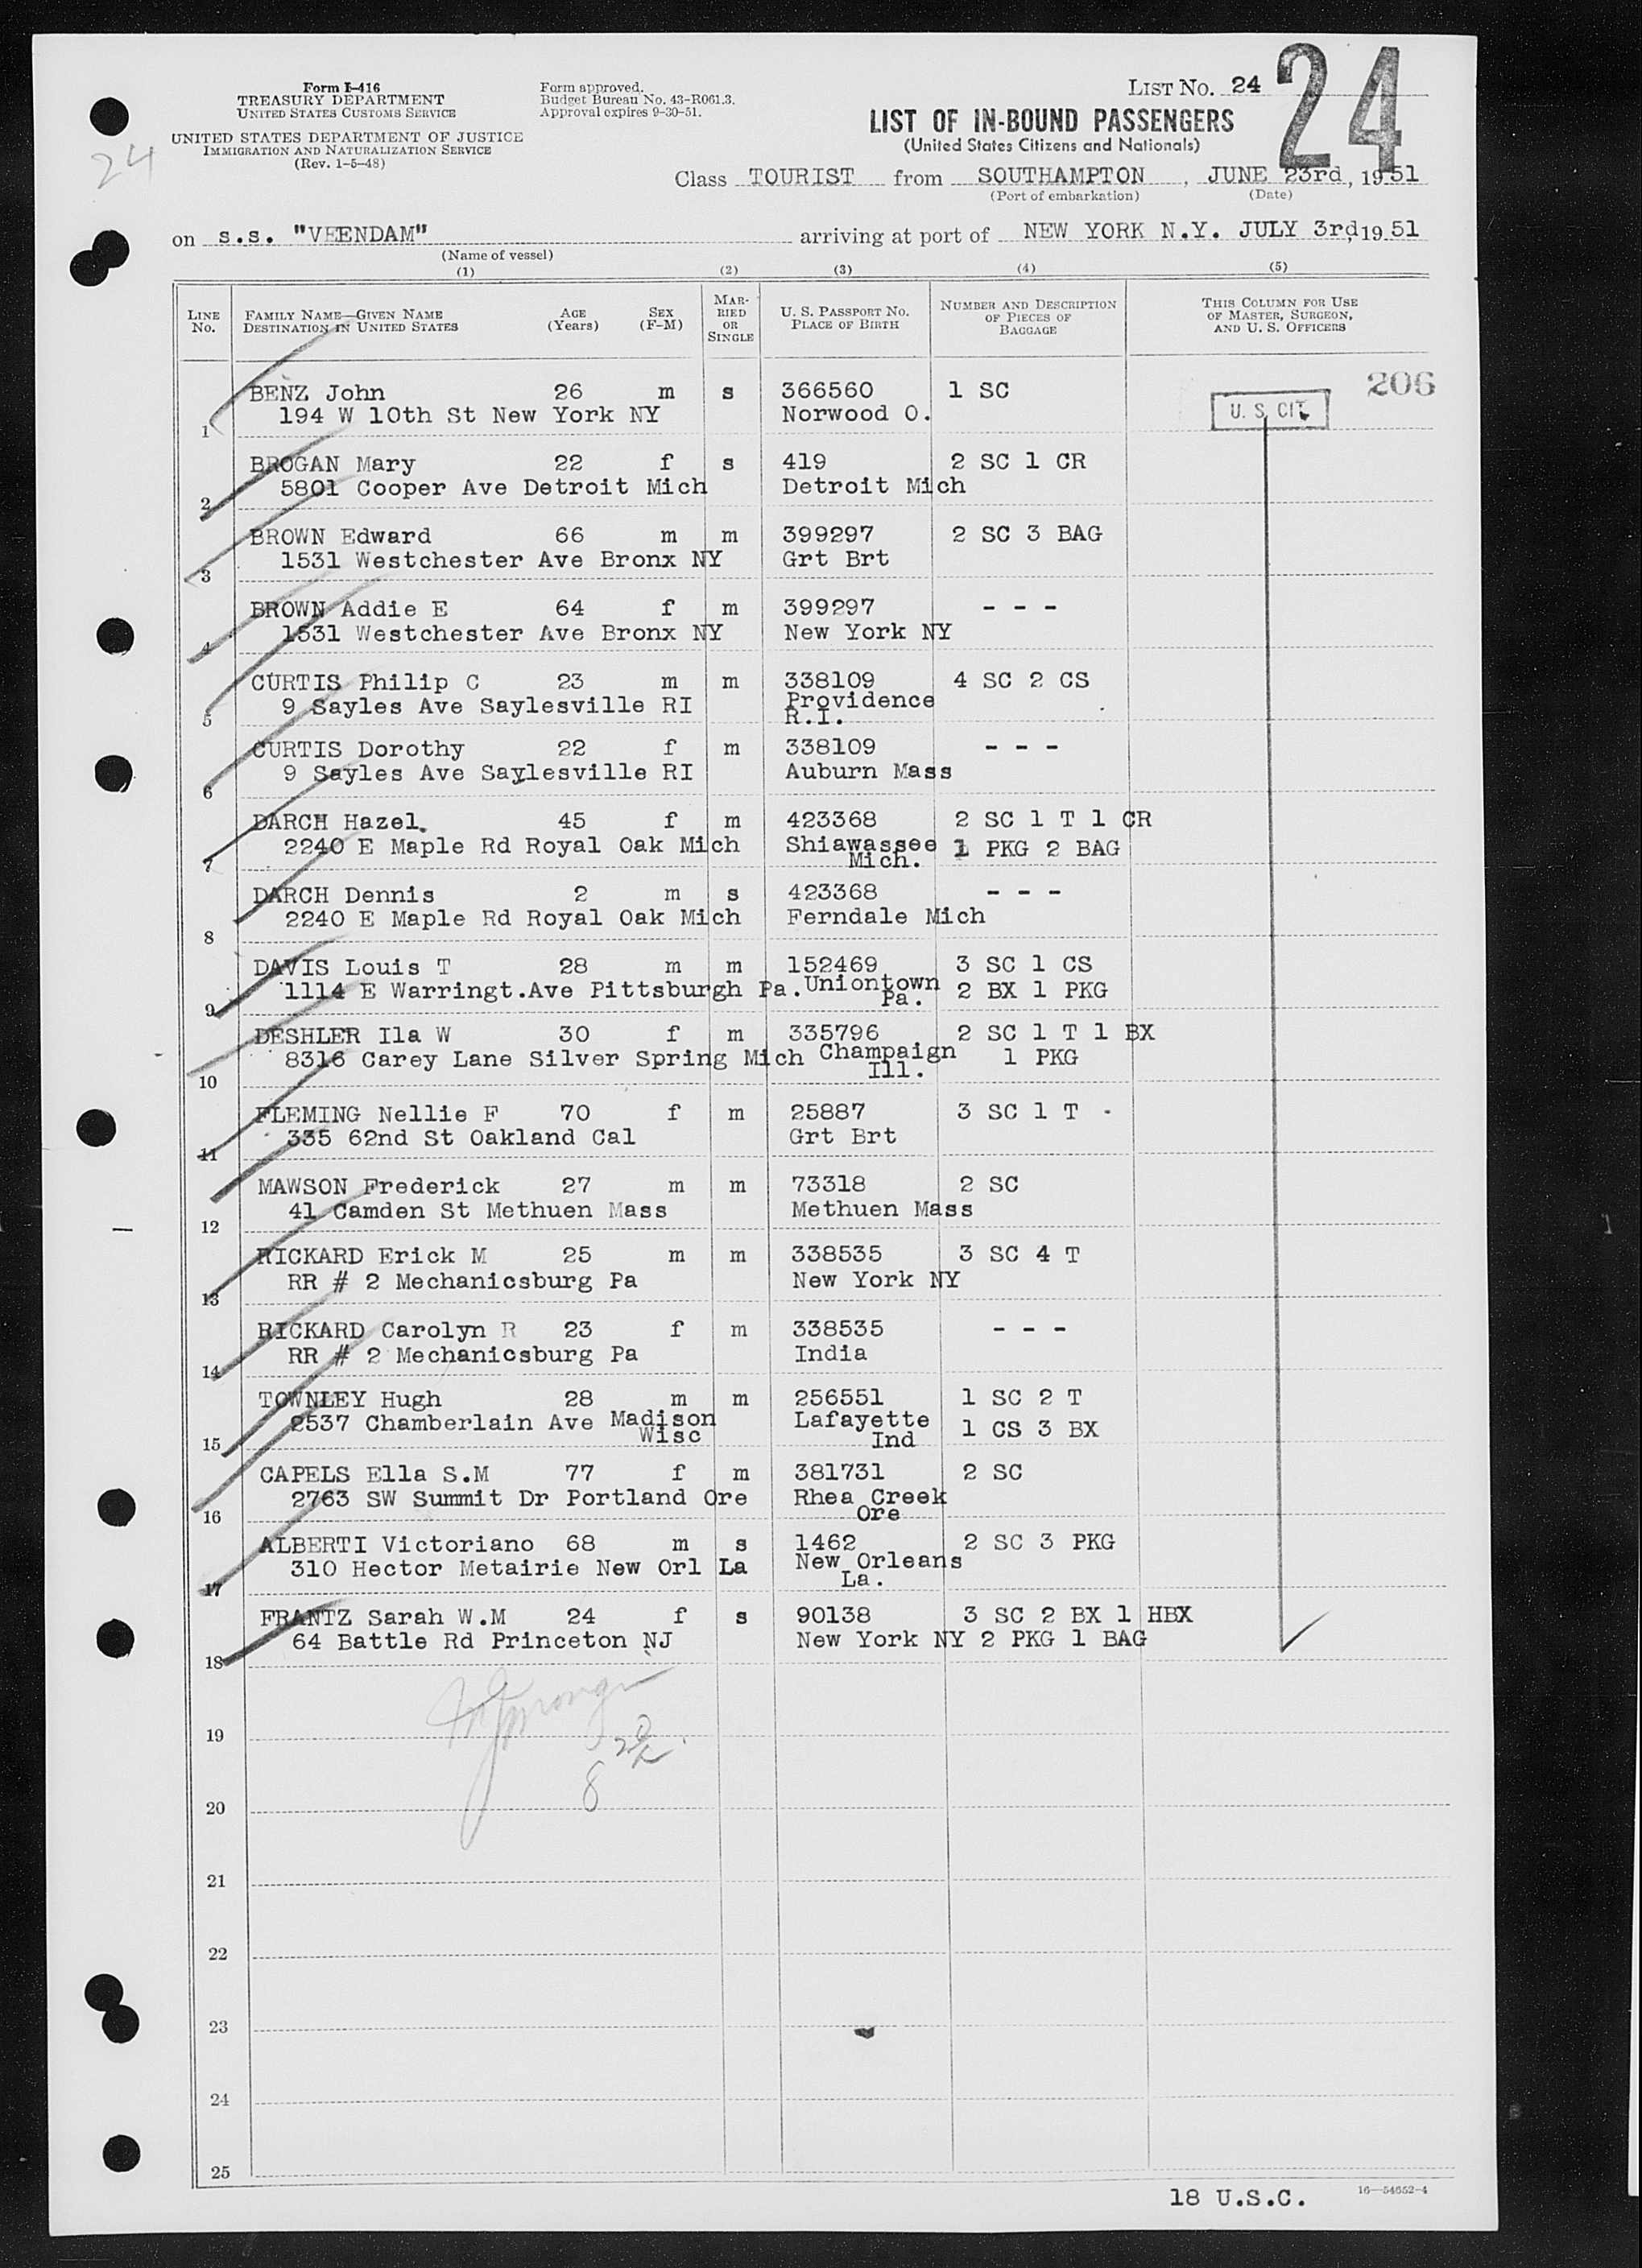 Form I-416
TREASURY DEPARTMENT
UNITED STATES CUSTOMS SERVICE
UNITED STATES DEPARTMENT OF JUSTICE
IMMIGRATION AND NATURALIZATION SERVICE
(Rev. 1-5-48)
24
Form approved.
Budget Bureau No. 43-R061.3.
Approval expires 9-30-51.
LIST NO. 24
24
LIST OF IN-BOUND PASSENGERS
(United States Citizens and Nationals)
Class TOURIST from SOUTHAMPTON, JUNE 23rd, 1951
(Port of embarkation) (Date)
on s.s. "VEENDAM" arriving at port of NEW YORK N.Y. JULY 3rd, 1951
(Name of vessel)
(1) (2) (3) (4) (5)
LINE No. FAMILY NAME—GIVEN NAME DESTINATION IN UNITED STATES AGE (Years) SEX (F-M) MARRIED OR SINGLE U. S. PASSPORT NO. PLACE OF BIRTH NUMBER AND DESCRIPTION OF PIECES OF BAGGAGE THIS COLUMN FOR USE OF MASTER, SURGEON, AND U. S. OFFICERS
206
U. S. CIT.
BENZ John 26 m s 366560 1 SC
1 194 W 10th St New York NY Norwood O.
BROGAN Mary 22 f s 419 2 SC 1 CR
2 5801 Cooper Ave Detroit Mich Detroit Mich
BROWN Edward 66 m m 399297 2 SC 3 BAG
3 1531 Westchester Ave Bronx NY Grt Brt
BROWN Addie E 64 f m 399297 - - -
4 1531 Westchester Ave Bronx NY New York NY
CURTIS Philip C 23 m m 338109 4 SC 2 CS
5 9 Sayles Ave Saylesville RI Providence R.I.
CURTIS Dorothy 22 f m 338109 - - -
6 9 Sayles Ave Saylesville RI Auburn Mass
DARCH Hazel 45 f m 423368 2 SC 1 T 1 CR
7 2240 E Maple Rd Royal Oak Mich Shiawassee Mich. 1 PKG 2 BAG
DARCH Dennis 2 m s 423368 - - -
8 2240 E Maple Rd Royal Oak Mich Ferndale Mich
DAVIS Louis T 28 m m 152469 3 SC 1 CS
9 1114 E Warringt.Ave Pittsburgh Pa. Uniontown Pa. 2 BX 1 PKG
DESHLER Ila W 30 f m 335796 2 SC 1 T 1 BX
10 8316 Carey Lane Silver Spring Mich Champaign Ill. 1 PKG
FLEMING Nellie F 70 f m 25887 3 SC 1 T
11 335 62nd St Oakland Cal Grt Brt
MAWSON Frederick 27 m m 73318 2 SC
12 41 Camden St Methuen Mass Methuen Mass
RICKARD Erick M 25 m m 338535 3 SC 4 T
13 RR # 2 Mechanicsburg Pa New York NY
RICKARD Carolyn R 23 f m 338535 - - -
14 RR # 2 Mechanicsburg Pa India
TOWNLEY Hugh 28 m m 256551 1 SC 2 T
15 2537 Chamberlain Ave Madison Wisc Lafayette Ind 1 CS 3 BX
CAPELS Ella S.M 77 f m 381731 2 SC
16 2763 SW Summit Dr Portland Ore Rhea Creek Ore
ALBERTI Victoriano 68 m s 1462 2 SC 3 PKG
17 310 Hector Metairie New Orl La New Orleans La.
FRANTZ Sarah W.M 24 f s 90138 3 SC 2 BX 1 HBX
18 64 Battle Rd Princeton NJ New York NY 2 PKG 1 BAG
19
20
21
22
23
24
25
18 U.S.C.
16—54652-4